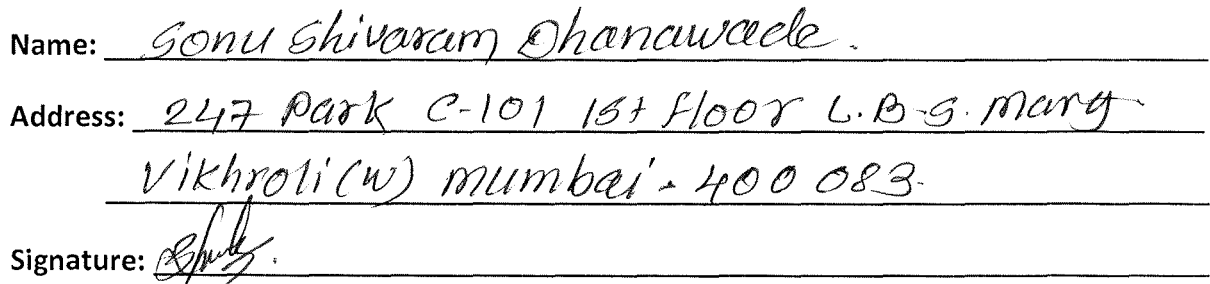 Name: Sonu Shivaram Dhanawade.
Address: 247 Park C-101 1st floor L.B.S. marg
Vikhroli (w) mumbai - 400 083.
Signature: